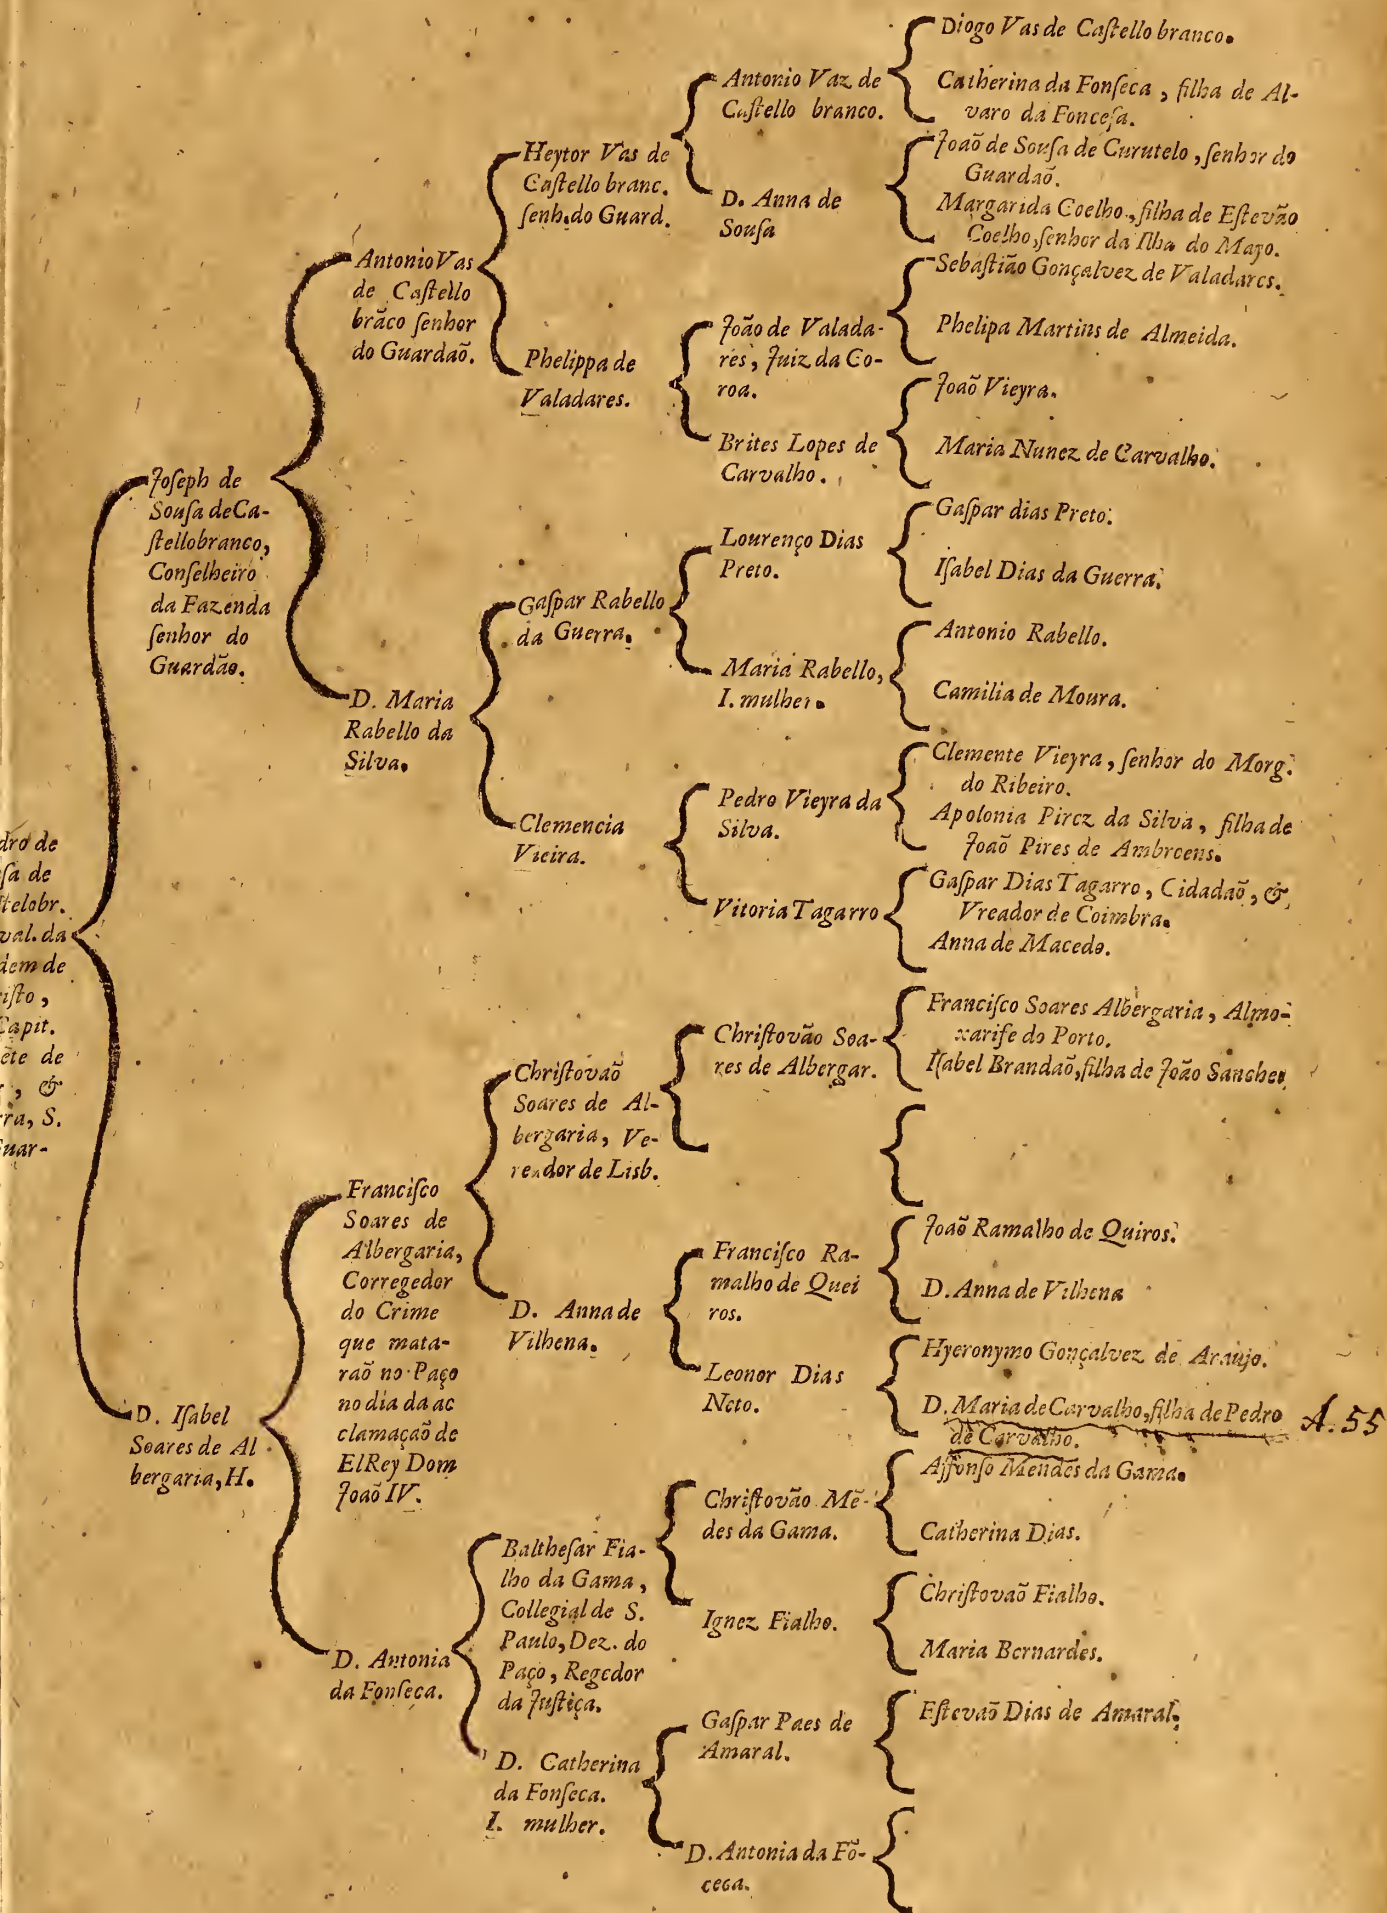 dro de
ſa de
telobr.
val. da
dem de
iſto,
Capit.
ẽte de
, &
rra, S.
uar-
Joſeph de
Souſa de Ca-
ſtellobranco,
Conſelheiro
da Fazenda
ſenhor do
Guardão.
D. Iſabel
Soares de Al
bergaria, H.
Antonio Vas
de Caſtello
brãco ſenhor
do Guardaõ.
D. Maria
Rabello da
Silva.
Franciſco
Soares de
Albergaria,
Corregedor
do Crime
que mata-
raõ no Paço
no dia da ac
clamaçaõ de
ElRey Dom
Joaõ IV.
D. Antonia
da Fonſeca.
Heytor Vas de
Caſtello branc.
ſenh. do Guard.
Phelippa de
Valadares.
Gaſpar Rabello
da Guerra.
Clemencia
Vieira.
Chriſtovaõ
Soares de Al-
bergaria, Ve-
reador de Lisb.
D. Anna de
Vilhena.
Baltheſar Fia-
lho da Gama,
Collegial de S.
Paulo, Dez. do
Paço, Regedor
da Juſtiça.
D. Catherina
da Fonſeca.
I. mulher.
Antonio Vaz de
Caſtello branco.
D. Anna de
Souſa
João de Valada-
res, Juiz da Co-
roa.
Brites Lopes de
Carvalho.
Lourenço Dias
Preto.
Maria Rabello,
I. mulher.
Pedro Vieyra da
Silva.
Vitoria Tagarro
Chriſtovão Soa-
res de Albergar.
Franciſco Ra-
malho de Quei
ros.
Leonor Dias
Neto.
Chriſtovão Mẽ-
des da Gama.
Ignez Fialho.
Gaſpar Paes de
Amaral.
D. Antonia da Fõ-
ceca.
Diogo Vas de Caſtello branco.
Catherina da Fonſeca, filha de Al-
varo da Fonceſa.
Joaõ de Souſa de Curutelo, ſenhor do
Guardaõ.
Margarida Coelho, filha de Eſtevão
Coelho, ſenhor da Ilha do Mayo.
Sebaſtião Gonçalvez de Valadares.
Phelipa Martins de Almeida.
Joaõ Vieyra.
Maria Nunez de Carvalho.
Gaſpar dias Preto.
Iſabel Dias da Guerra.
Antonio Rabello.
Camilia de Moura.
Clemente Vieyra, ſenhor do Morg.
do Ribeiro.
Apolonia Pirez da Silva, filha de
Joaõ Pires de Ambroens.
Gaſpar Dias Tagarro, Cidadaõ, &
Vreador de Coimbra.
Anna de Macedo.
Franciſco Soares Albergaria, Almo-
xarife do Porto.
Iſabel Brandaõ, filha de João Sanches
Joaõ Ramalho de Quiros.
D. Anna de Vilhena
Hyeronymo Gonçalvez de Araujo.
D. Maria de Carvalho, filha de Pedro A. 55
de Carvalho.
Affonſo Mendes da Gama.
Catherina Dias.
Chriſtovaõ Fialho.
Maria Bernardes.
Eſtevaõ Dias de Amaral.